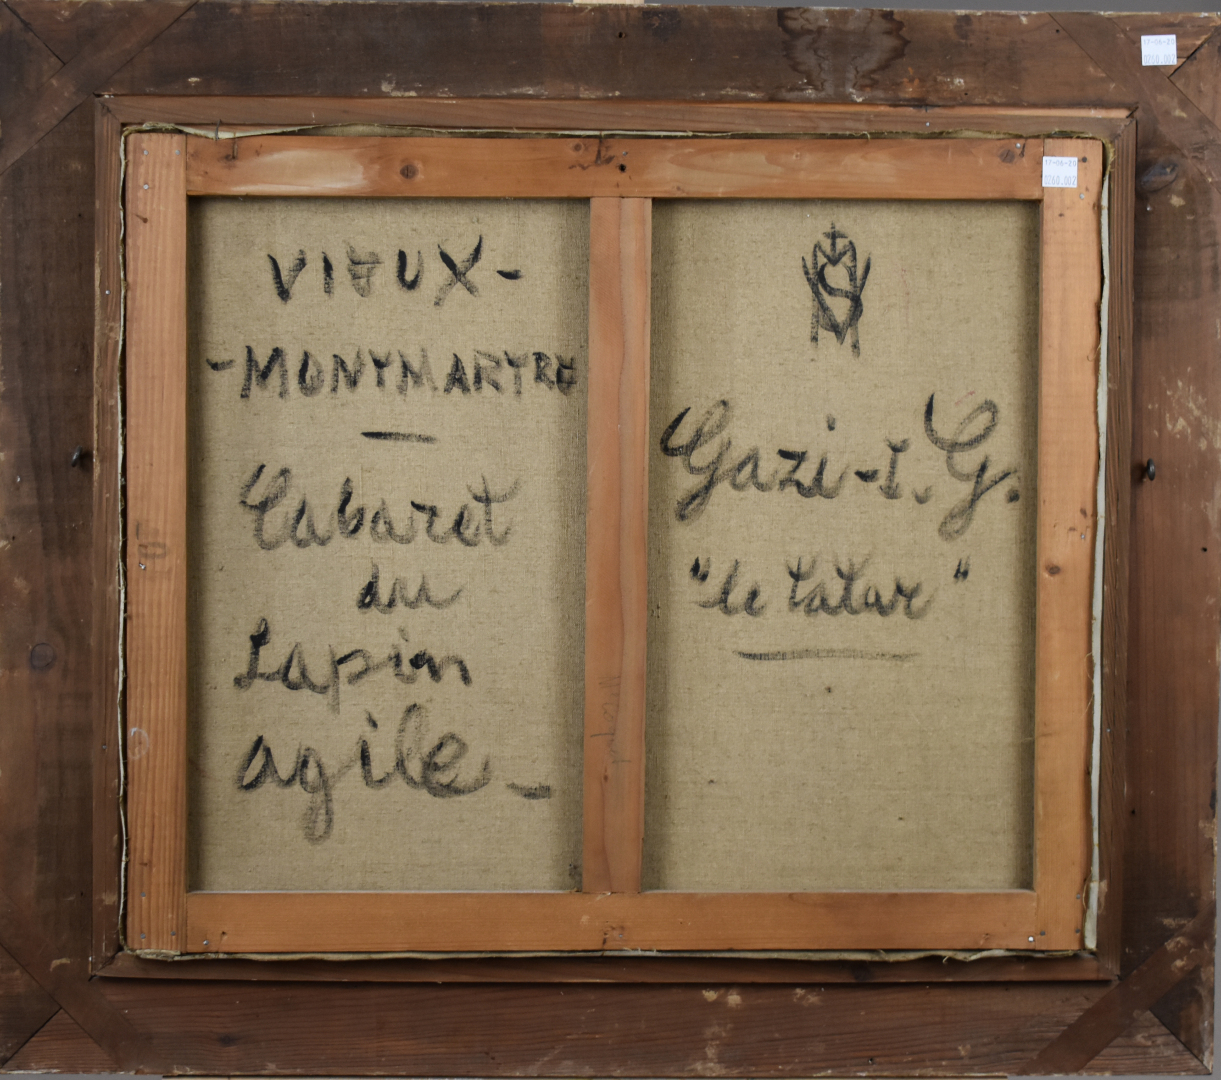 VIEUX-
-MONTMARTRE
Cabaret
du
Lapin
agile_
Gazi-I. G.
"le tatar"
17-06-20
0260.002
17-06-20
0260.002